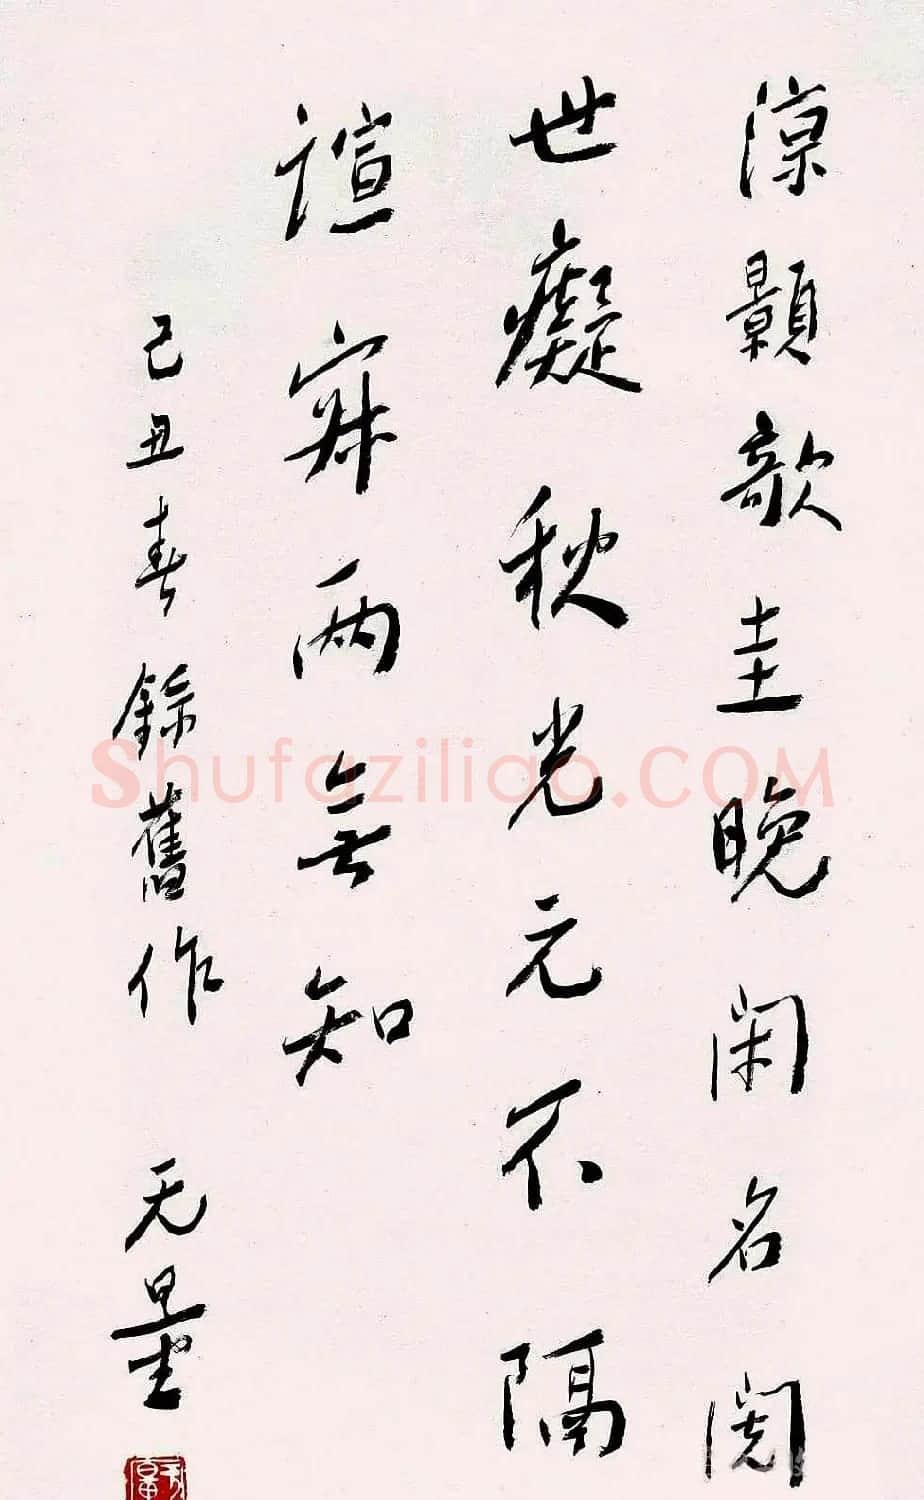 涼顥欹圭晚閑名閱
世癡秋光元不隔
諠寂兩無知
己丑春錄舊作 无量
Shufaziliao.COM